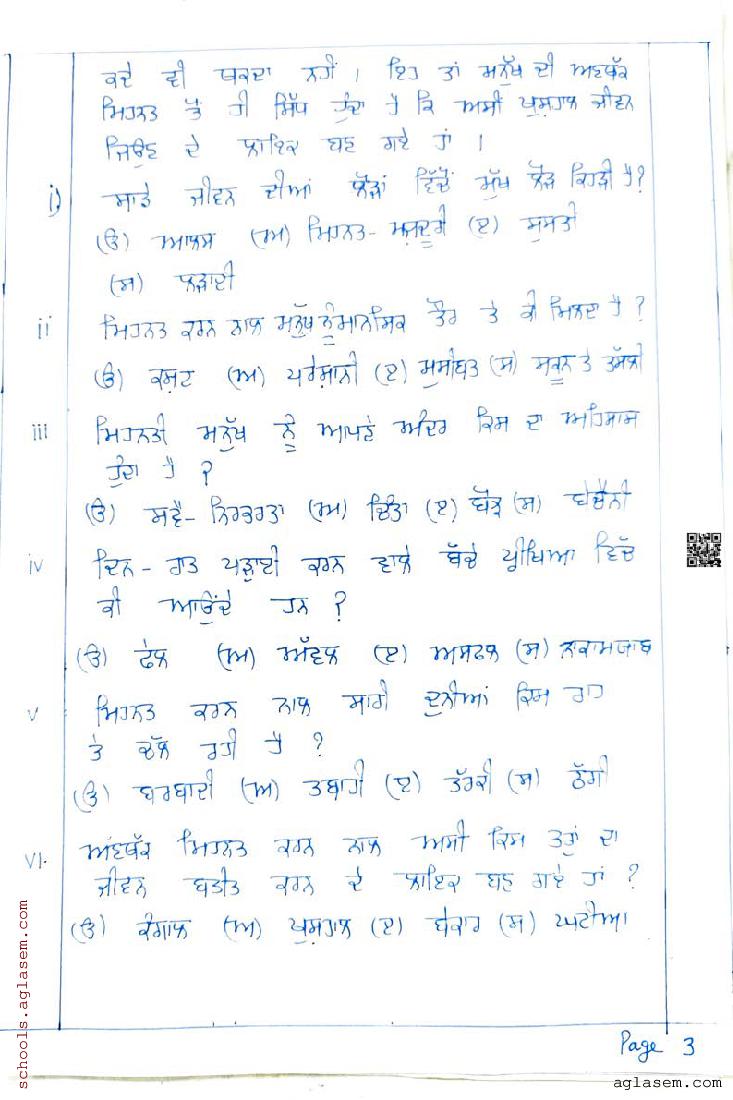 ਕਦੇ ਵੀ ਥਕਦਾ ਨਹੀਂ । ਇਹ ਤਾਂ ਮਨੁੱਖ ਦੀ ਅਣਥੱਕ
ਮਿਹਨਤ ਤੋਂ ਹੀ ਸਿੱਧ ਹੁੰਦਾ ਹੈ ਕਿ ਅਸੀਂ ਖੁਸ਼ਹਾਲ ਜੀਵਨ
ਜਿਊਣ ਦੇ ਲਾਇਕ ਬਣ ਗਏ ਹਾਂ ।
i) ਸਾਡੇ ਜੀਵਨ ਦੀਆਂ ਲੋੜਾਂ ਵਿੱਚੋਂ ਮੁੱਖ ਲੋੜ ਕਿਹੜੀ ਹੈ?
(ੳ) ਆਲਸ (ਅ) ਮਿਹਨਤ-ਮਜ਼ਦੂਰੀ (ੲ) ਸੁਸਤੀ
(ਸ) ਲੜਾਈ
ii ਮਿਹਨਤ ਕਰਨ ਨਾਲ ਮਨੁੱਖ ਨੂੰ ਮਾਨਸਿਕ ਤੌਰ ਤੇ ਕੀ ਮਿਲਦਾ ਹੈ ?
(ੳ) ਕਸ਼ਟ (ਅ) ਪਰੇਸ਼ਾਨੀ (ੲ) ਮੁਸੀਬਤ (ਸ) ਸਕੂਨ ਤੇ ਤਸੱਲੀ
iii ਮਿਹਨਤੀ ਮਨੁੱਖ ਨੂੰ ਆਪਣੇ ਅੰਦਰ ਕਿਸ ਦਾ ਅਹਿਸਾਸ
ਹੁੰਦਾ ਹੈ ?
(ੳ) ਸਵੈ-ਨਿਰਭਰਤਾ (ਅ) ਚਿੰਤਾ (ੲ) ਬੋਝ (ਸ) ਬੇਚੈਨੀ
iv ਦਿਨ-ਰਾਤ ਪੜ੍ਹਾਈ ਕਰਨ ਵਾਲੇ ਬੱਚੇ ਪ੍ਰੀਖਿਆ ਵਿੱਚ
ਕੀ ਆਉਂਦੇ ਹਨ ?
(ੳ) ਫੇਲ (ਅ) ਅੱਵਲ (ੲ) ਅਸਫਲ (ਸ) ਨਕਾਮਯਾਬ
v ਮਿਹਨਤ ਕਰਨ ਨਾਲ ਸਾਰੀ ਦੁਨੀਆਂ ਕਿਸ ਰਾਹ
ਤੇ ਚੱਲ ਰਹੀ ਹੈ ?
(ੳ) ਬਰਬਾਦੀ (ਅ) ਤਬਾਹੀ (ੲ) ਤੱਰਕੀ (ਸ) ਠੱਗੀ
VI. ਅਣਥੱਕ ਮਿਹਨਤ ਕਰਨ ਨਾਲ ਅਸੀਂ ਕਿਸ ਤਰ੍ਹਾਂ ਦਾ
ਜੀਵਨ ਬਤੀਤ ਕਰਨ ਦੇ ਲਾਇਕ ਬਣ ਗਏ ਹਾਂ ?
(ੳ) ਕੰਗਾਲ (ਅ) ਖੁਸ਼ਹਾਲ (ੲ) ਬੇਕਾਰ (ਸ) ਘਟੀਆ
Page 3
schools.aglasem.com
aglasem.com